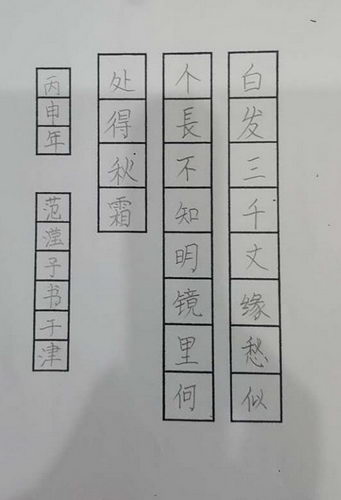 白发三千丈缘愁似
个長不知明镜里何
处得秋霜
丙申年
范滢子书于津